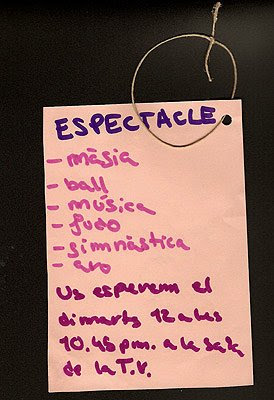 ESPECTACLE
- màgia
- ball
- música
- judo
- gimnàstica
- aro
Us esperem el
dimarts 12 a les
10.45 pm. a la sala
de la T.V.